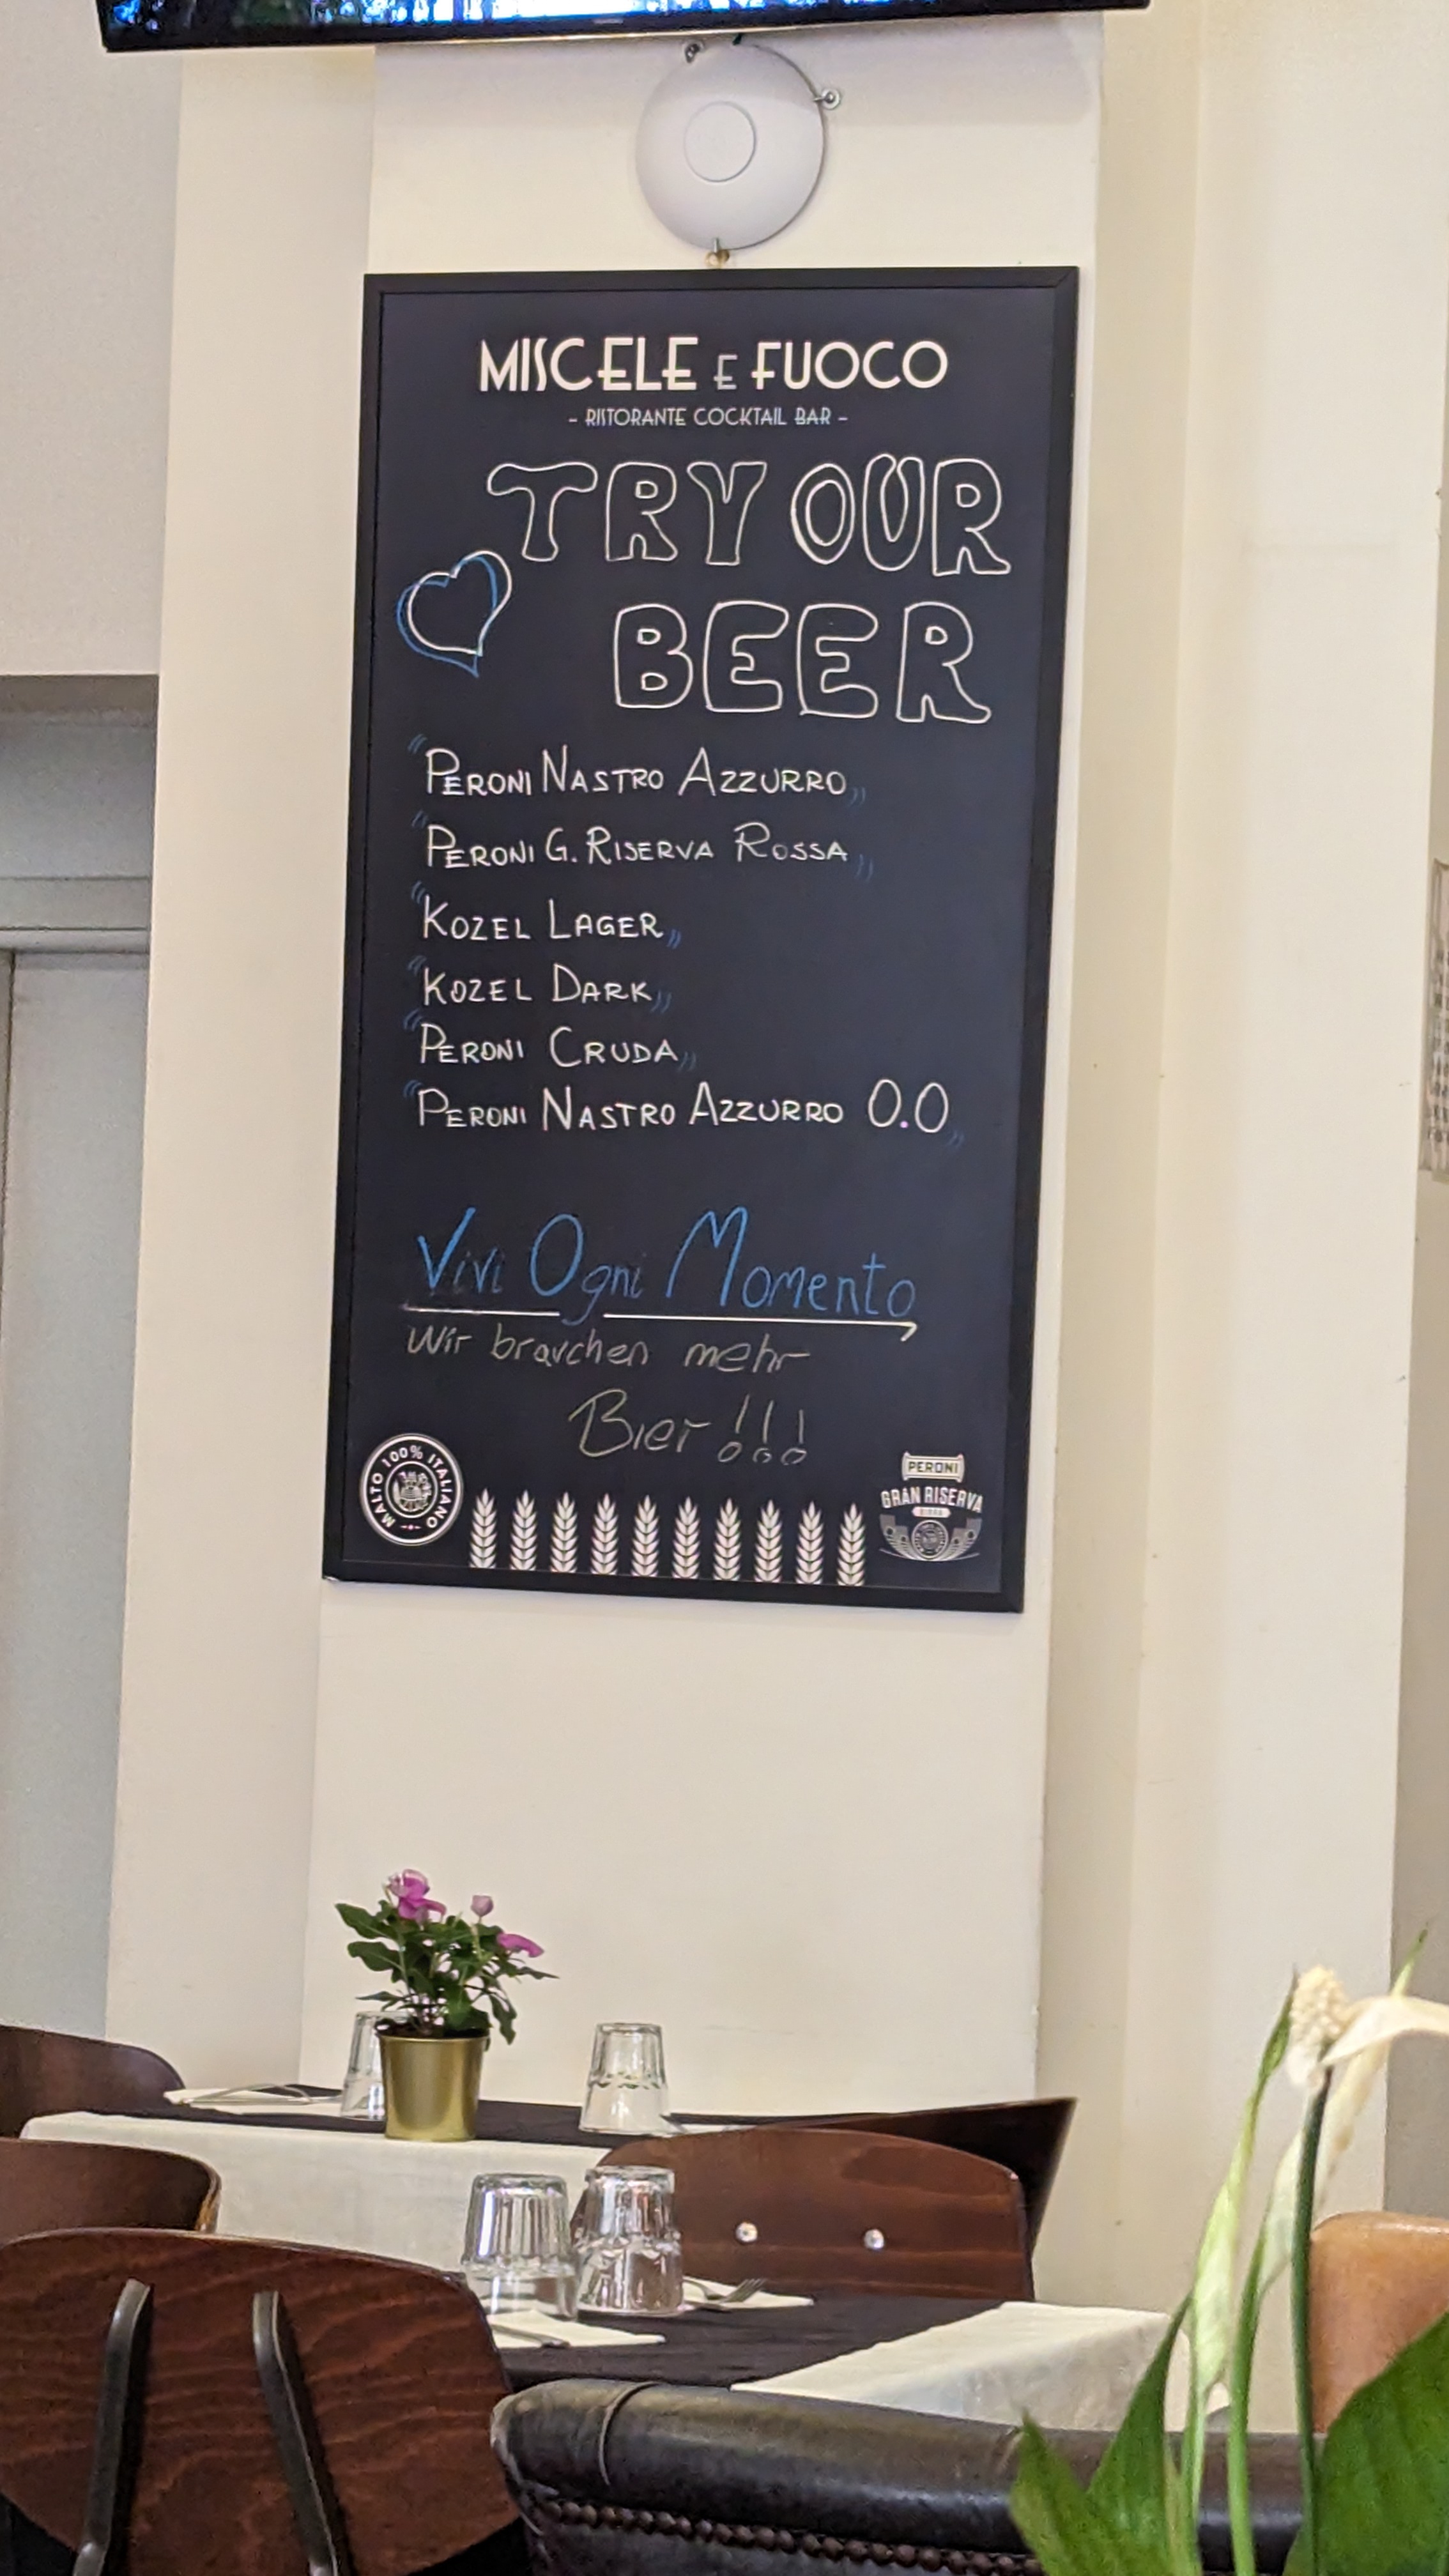 MISCELE E FUOCO
- RISTORANTE COCKTAIL BAR -
TRY OUR
BEER
"PERONI NASTRO AZZURRO"
"PERONI G. RISERVA ROSSA"
"KOZEL LAGER"
"KOZEL DARK"
"PERONI CRUDA"
"PERONI NASTRO AZZURRO 0.0"
Vivi Ogni Momento
Wir brauchen mehr
Bier!!!
MALTO 100% ITALIANO
PERONI
GRAN RISERVA